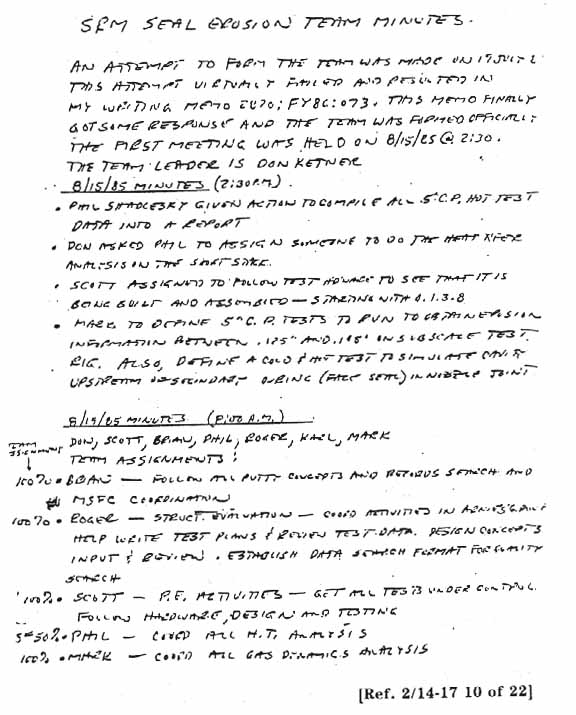 SRM SEAL EROSION TEAM MINUTES.
AN ATTEMPT TO FORM THE TEAM WAS MADE ON 19 JULY
THIS ATTEMPT VIRTUALLY FAILED AND RESULTED IN
MY WRITING MEMO 2870; FY86:073. THIS MEMO FINALLY
GOT SOME RESPONSE AND THE TEAM WAS FORMED OFFICIALLY
THE FIRST MEETING WAS HELD ON 8/15/85 @ 2:30.
THE TEAM LEADER IS DON KETNER
8/15/85 MINUTES (2:30 P.M.)
• PHIL SHADLESKY GIVEN ACTION TO COMPILE ALL 5" C.P. HOT TEST
DATA INTO A REPORT
• DON ASKED PHIL TO ASSIGN SOMEONE TO DO THE HEAT XFER
ANALYSIS ON THE SHORT STACK.
• SCOTT ASSIGNED TO FOLLOW TEST HDWARE TO SEE THAT IT IS
BEING BUILT AND ASSEMBLED — STARTING WITH 0.1.3.8
• MARK TO DEFINE 5" C.P. TESTS TO RUN TO OBTAIN EROSION
INFORMATION BETWEEN .125" AND ON SUBSCALE TEST
RIG. ALSO, DEFINE A COLD & HOT TEST TO SIMULATE CAVITY
UPSTREAM OF SECONDARY O-RING (FACE SEAL) IN NOZZLE JOINT
8/19/85 MINUTES (8:00 A.M.)
DON, SCOTT, BRIAN, PHIL, ROGER, KARL, MARK
TEAM
ASSIGNMENT
TEAM ASSIGNMENTS:
100% • BRIAN — FOLLOW ALL PUTTY CONCEPTS AND RECORDS SEARCH AND
MSFC COORDINATION
100% • ROGER — STRUCT. EVALUATION — COORD ACTIVITIES IN ARNIE'S GROUP
HELP WRITE TEST PLANS & REVIEW TEST DATA. DESIGN CONCEPTS
INPUT & REVIEW. ESTABLISH DATA SEARCH FORMAT FOR QUALITY
SEARCH
100% • SCOTT — P.E. ACTIVITIES — GET ALL TESTS UNDER CONTROL.
FOLLOW HARDWARE, DESIGN AND TESTING
50% • PHIL — COORD ALL H.T. ANALYSIS
100% • MARK — COORD ALL GAS DYNAMICS ANALYSIS
[Ref. 2/14-17 10 of 22]